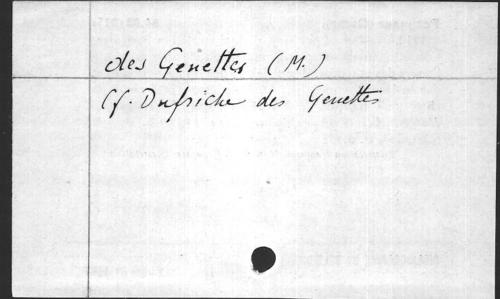 des Genettes (M.)
Cf. Dufriche des Genettes